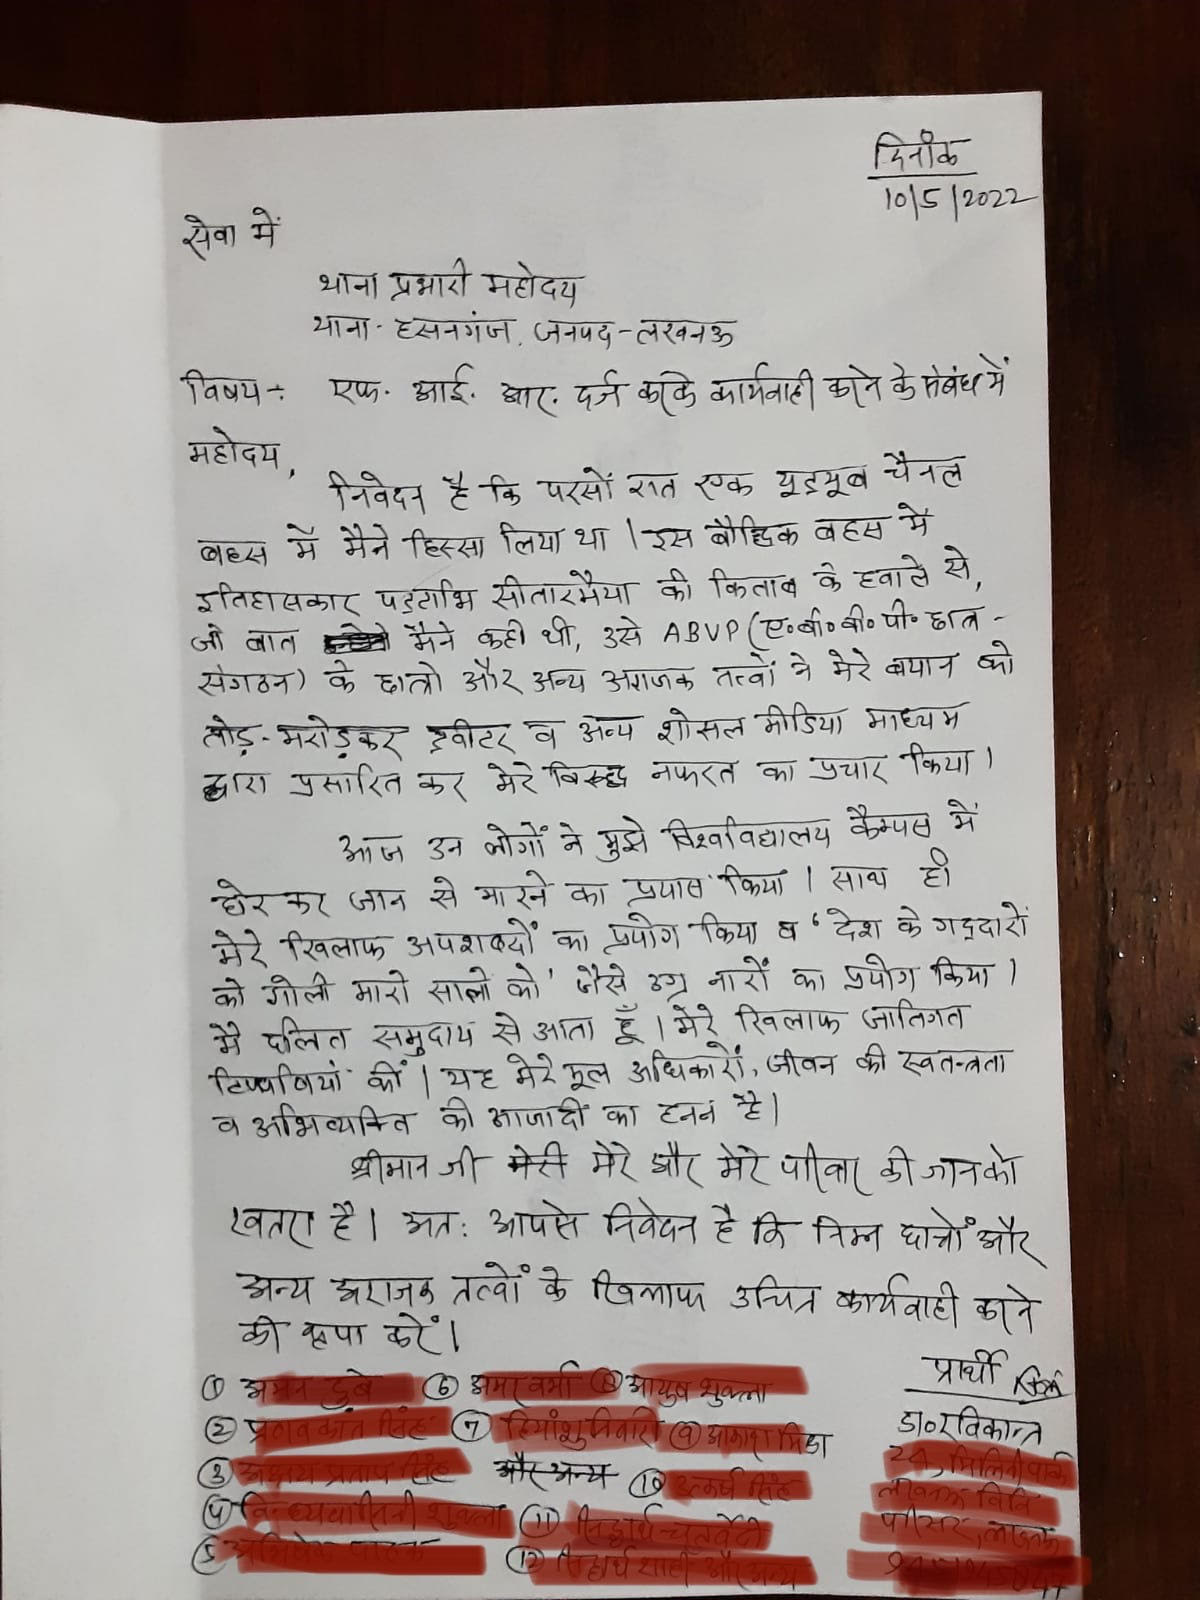 दिनांक
10/5/2022
सेवा में
थाना प्रभारी महोदय
थाना- हसनगंज, जनपद-लखनऊ
विषय-: एफ. आई. आर. दर्ज करके कार्यवाही करने के संबंध में
महोदय,
निवेदन है कि परसों रात एक यूट्यूब चैनल
बहस में मैंने हिस्सा लिया था। इस बौद्धिक बहस में
इतिहासकार पट्टाभि सीतारमैया की किताब के हवाले से,
जो बात मैंने कही थी, उसे ABVP (ए०बी०वी०पी० छात्र-
संगठन) के छात्रों और अन्य अराजक तत्वों ने मेरे बयान को
तोड़-मरोड़कर ट्वीटर व अन्य शोसल मीडिया माध्यम
द्वारा प्रसारित कर मेरे विरुद्ध नफरत का प्रचार किया।
आज उन लोगों ने मुझे विश्वविद्यालय कैम्पस में
घेर कर जान से मारने का प्रयास किया। साथ ही
मेरे खिलाफ अपशब्दों का प्रयोग किया व 'देश के गद्दारों
को गोली मारो सालों को' जैसे उग्र नारों का प्रयोग किया।
मैं दलित समुदाय से आता हूँ। मेरे खिलाफ जातिगत
टिप्पणियां कीं। यह मेरे मूल अधिकारों, जीवन की स्वतन्त्रता
व अभिव्यक्ति की आजादी का हनन है।
श्रीमान जी मेरे और मेरे परिवार की जान को
खतरा है। अत: आपसे निवेदन है कि निम्न छात्रों और
अन्य अराजक तत्वों के खिलाफ उचित कार्यवाही करने
की कृपा करें।
प्रार्थी
डा०रविकान्त
① ⑥ ⑧
② ⑦ ⑨
③ और अन्य ⑩
④ ⑪
⑤ ⑫